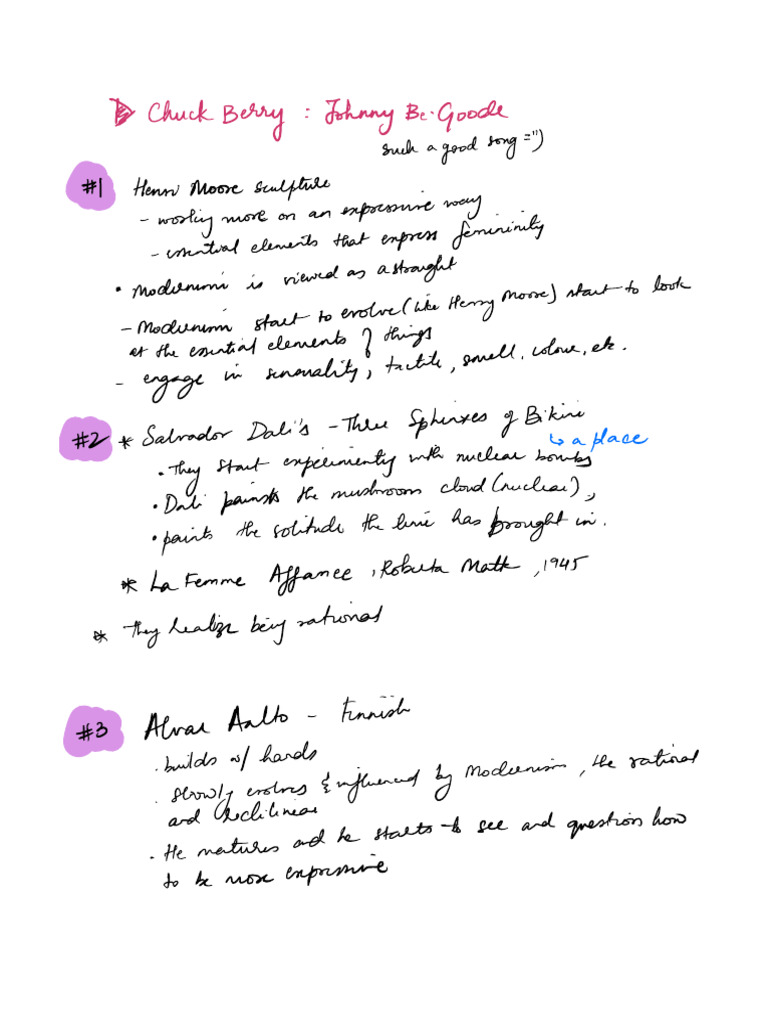 Chuck Berry : Johnny Be Goode
such a good song =")
#1 Henri Moore sculpture
- working more on an expressive way
- essential elements that express femininity
• Modernism is viewed as a straight
- Modernism start to evolve (like Henry Moore) start to look
at the essential elements of things
- engage in sensuality, tactile, smell, colour, etc.
#2 * Salvador Dali's - Three Sphinxes of Bikini
↳ a place
• They start experimenting with nuclear bombs
• Dali paints the mushroom cloud (nuclear),
• paints the solitude the has brought in.
* La Femme Affamee, Roberta Matta, 1945
* They realize being rational
#3 Alvar Aalto - Finnish
• builds w/ hands
• slowly evolves & influenced by Modernism, the rational
and rectilinear
• He matures and he starts to see and question how
to be more expressive